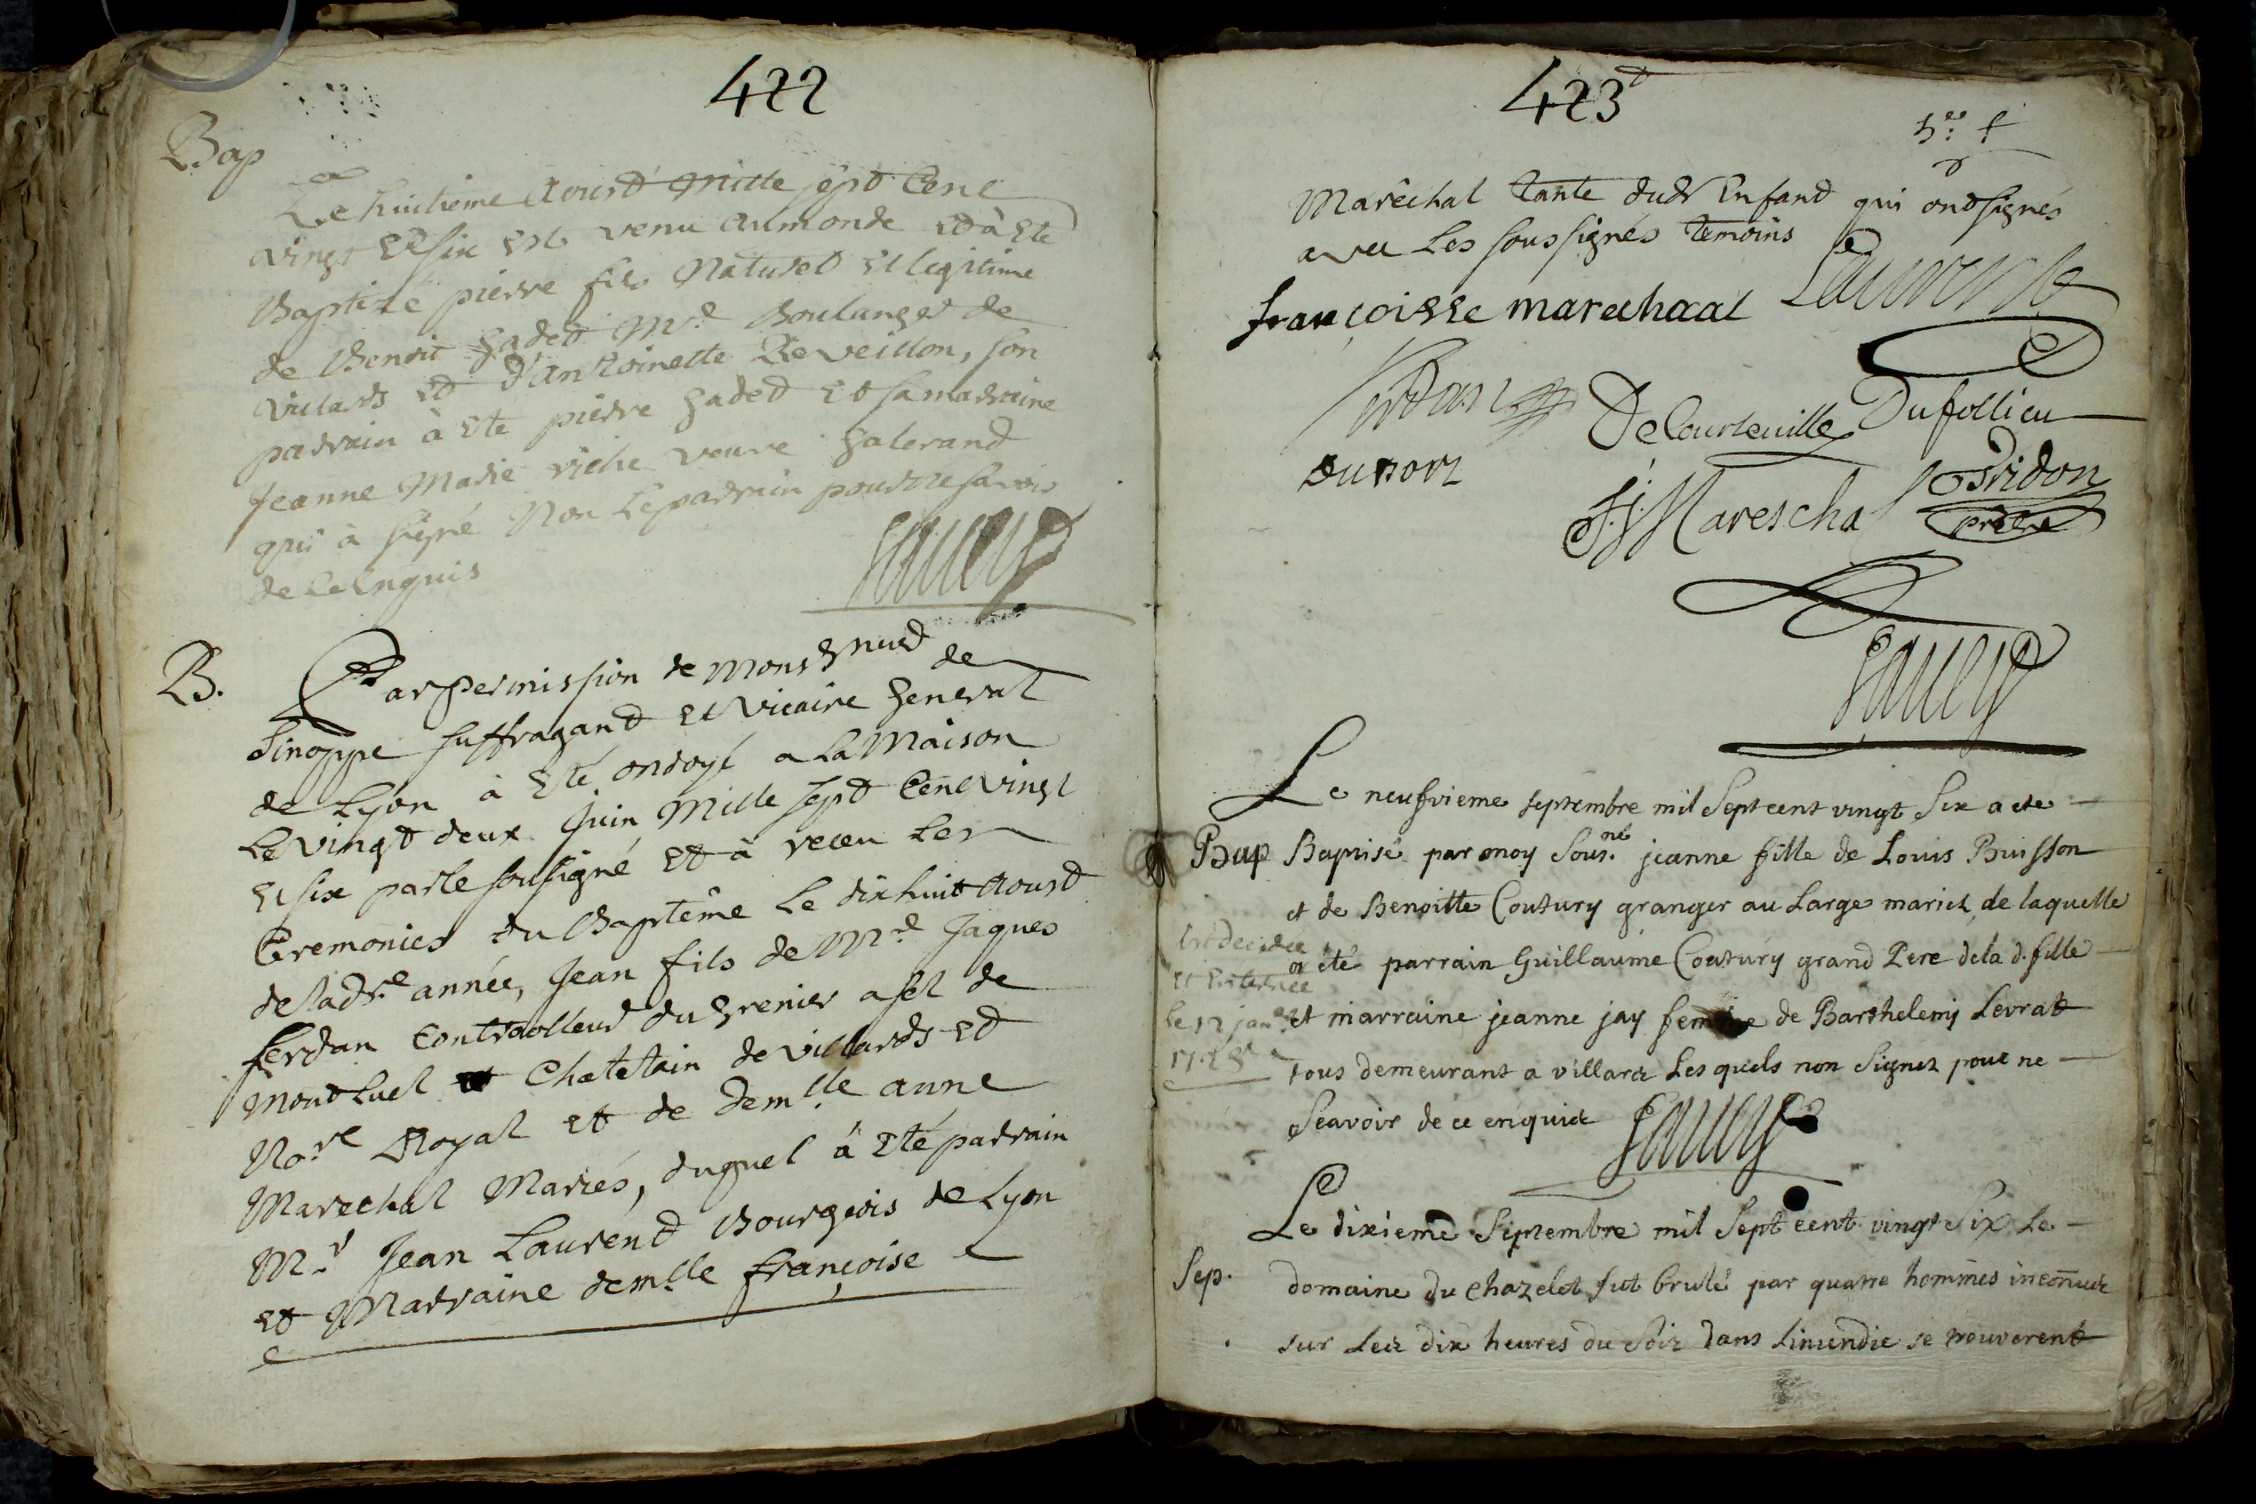 422
Bap
Le huitieme Aoust Mille sept Cent
vingt Et six Est venu au monde Et à Eté
Baptizé pierre fils Naturel Et legitime
de Benoit gadet Md Boulanger de
villars Et d'antoinette Reveillon, son
parrain à Eté pierre gadet Et sa marraine
Jeanne Marie riche veuve galerand
qui à signé Non le parrain pour ne savoir
de ce Enquis
B. Par permission de monsgneur de
Sinoppe suffragand Et vicaire general
de Lyon à Eté ondoyé a la Maison
Le vingt deux Juin Mille sept Cent vingt
Et six par le sousigné Et à receu Les
Ceremonies du Baptême Le dix huit Aoust
de ladte année, Jean fils de Mre Jaques
ferdan Controolleur du grenier a sel de
montluel et Chatelain de villards Et
Nore Royal Et de demlle anne
Marechal Mariés, duquel à Eté parrain
Mr Jean Laurend Bourgeois de Lyon
et Marraine demlle françoise
423
5e f
Maréchal tante dudt Enfant qui ont signés
avec Les soussignés temoins
françoisse marechaal
DeCourteuille Dufollieu
Dunoor
J. J. Mareschal
pretre
Le neufvieme septembre mil Sept cent vingt Six a eté
Bap Baptisé par moy Sousné jeanne fille de Louis Buisson
et de Benoitte Coutury granger au Large mariez de laquelle
a eté parrain Guillaume Coutury grand Pere de la d. fille
et marraine jeanne jay femme de Barthelemy Levrat
tous demeurant a villard Les quels non Signez pour ne
Scavoir de ce enquis
Est decedée
Et Enterrée
Le 12 janr
Le dixieme Septembre mil Sept cent vingt Six Le
Sep. domaine du Chazelet fut brulé par quatre hommes inconnus
sur Les dix heures du Soir dans Lincendie se trouverent